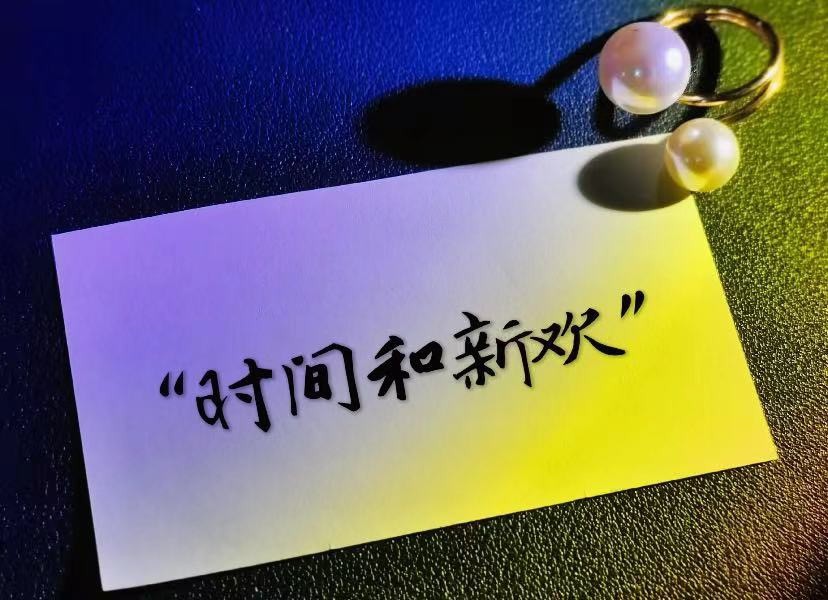 “时间和新欢”